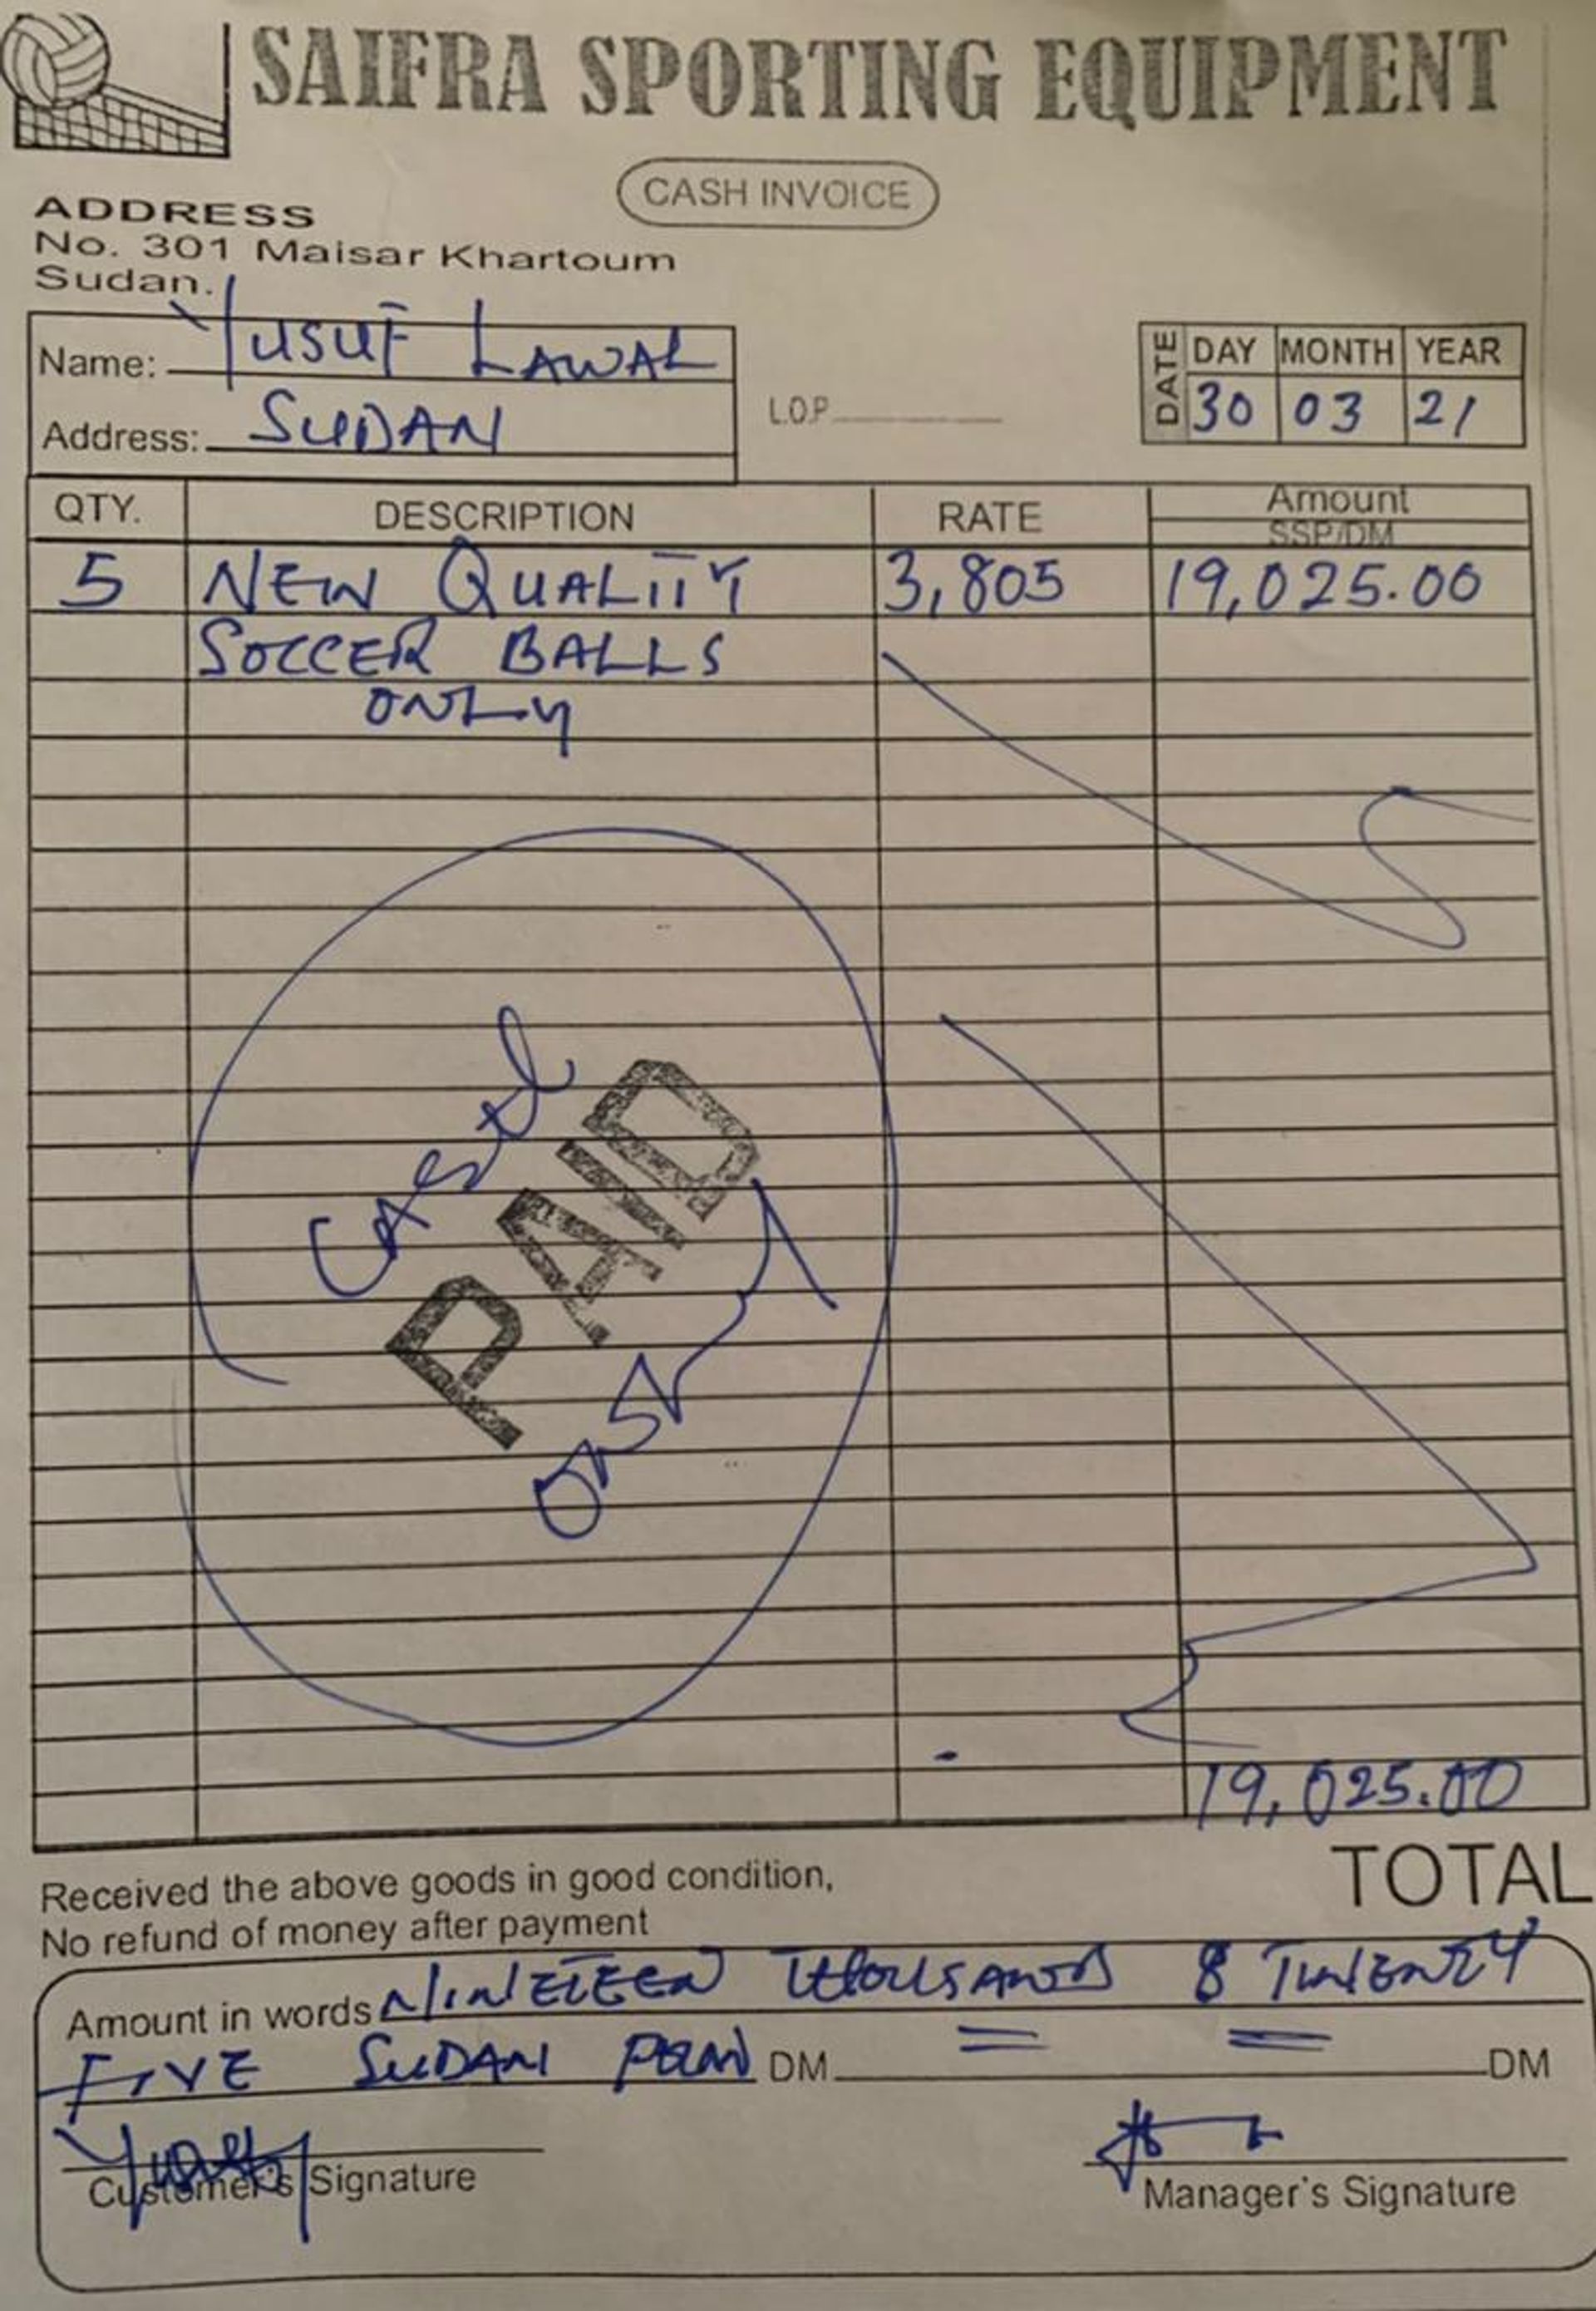 SAIFRA SPORTING EQUIPMENT
CASH INVOICE
ADDRESS
No. 301 Maisar Khartoum
Sudan.
Name: YUSUF LAWAL
Address: SUDAN
L.O.P
DATE DAY MONTH YEAR
30 03 21
QTY. DESCRIPTION RATE Amount
SSP/DM
5 NEW QUALITY 3,805 19,025.00
SOCCER BALLS
ONLY
CASH
PAID
ONLY
19,025.00
TOTAL
Received the above goods in good condition,
No refund of money after payment
Amount in words NINETEEN THOUSAND & TWENTY
FIVE SUDAN DM = = DM
Customer's Signature
Manager's Signature